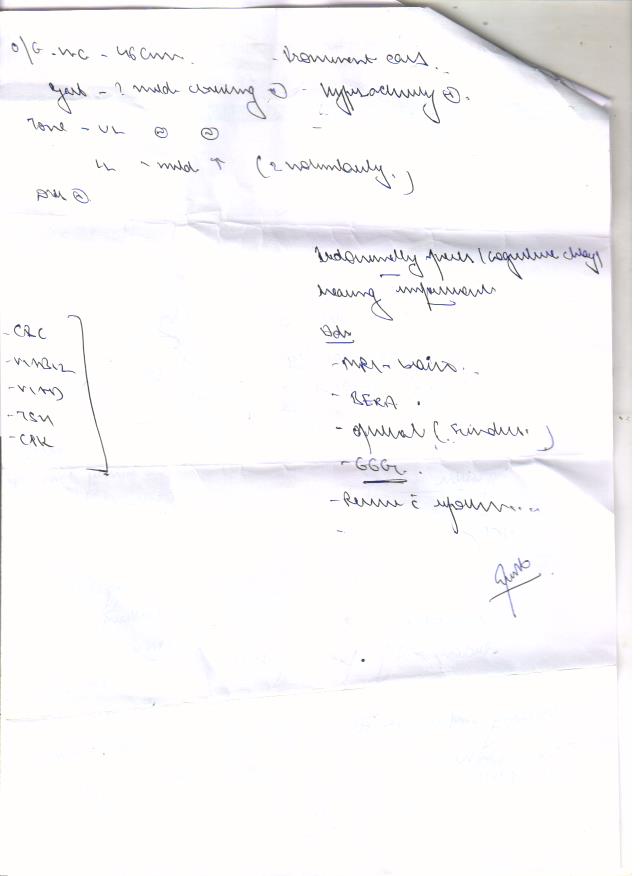 O/E - HC - 46cm. - Prominent ears.
Gait - ? mild crouching ⊕ - hyperactivity ⊕.
Tone - UL Ⓝ Ⓝ
LL - mild ↑ (? voluntarily.)
DTR ⊕
(cognitive delay)
hearing impairment
Adv
- CBC
- Vit B12
- Vit D
- TSH
- CPK
- MRI - brain.
- BERA.
- Opthal (Fundus.)
- EEG.
- Review c̄ reports....